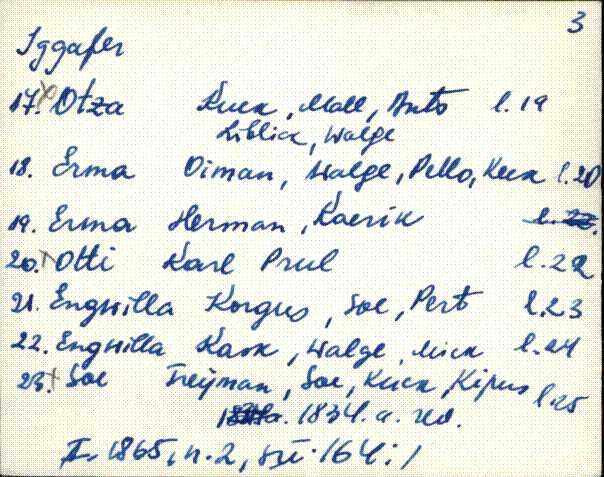 3
Iggafer
17. Otza Kuck, Mall, Anto l. 19
Liblick, Walge
18. Erma Oiman, Walge, Pello, Keek l. 20
19. Erma Herman, Kaerik l. 22.
20. Otti Karl Prul l. 22
21. Engwilla Korgus, Soe, Pert l. 23
22. Engwilla Kask, Walge, Mick l. 24
23. Soe Treyman, Soe, Kuck, Kipus l. 25
1834. a. rev.
F. 1865, n. 2, 164: 1